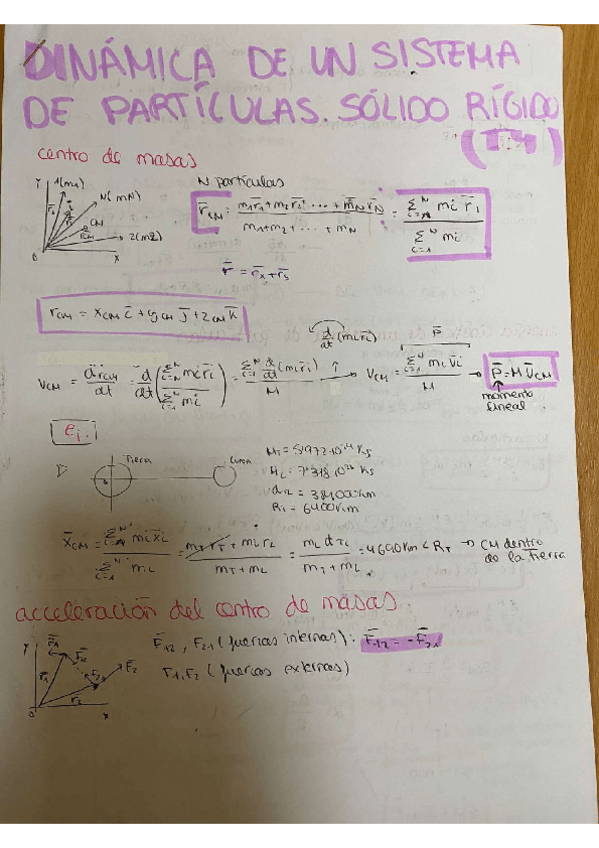 DINÁMICA DE UN SISTEMA
DE PARTÍCULAS. SÓLIDO RÍGIDO
(T.4)
centro de masas
Y 1(m1) N(mN) CM 2(m2) 0 X
N partículas
r̄CM = (m1r̄1 + m2r̄2 + ... + m̄N r̄N) / (m1 + m2 + ... + mN) = Σ mi r̄i / Σ mi
r̄ = r̄x + r̄s
rCM = xCM ī + yCM J̄ + zCM k̄
d/dt (mi r̄i) P̄
vCM = d r̄CM / dt = d̄/dt (Σ mi r̄i / Σ mi) = Σ d/dt (mi r̄i) / M → vCM = Σ mi v̄i / M → P̄ = M v̄CM
momento
lineal
ej.
Tierra Luna
MT = 5'972·10²⁴ Kg
ML = 7'3
RT = 6400 km
x̄CM = Σ mi x̄i / Σ mi = (mT rT + mL rL) / (mT + mL) = mL dTL / (mT + mL) = 4690 km < RT → CM dentro
de la Tierra
acceleración del centro de masas
Y F̄1 F̄12 F̄21 F̄2 r̄1 r2 0 X
F̄12, F21 (fuerzas internas): F̄12 = -F̄21
F1, F2 (fuerzas externas)